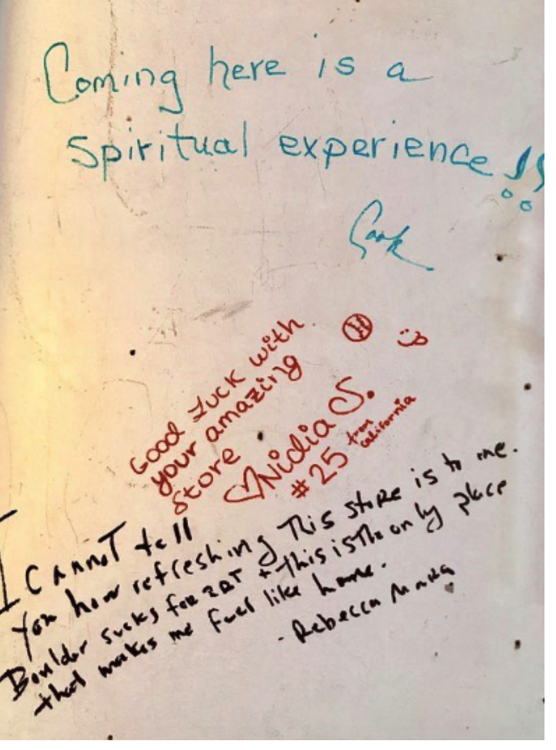 Coming here is a
spiritual experience!!
Good Luck with
your amazing
store
Nidia S.
#25 from
California
I cannot tell
you how refreshing This store is to me.
Boulder sucks for + This is The only place
that makes me feel like home.
- Rebecca